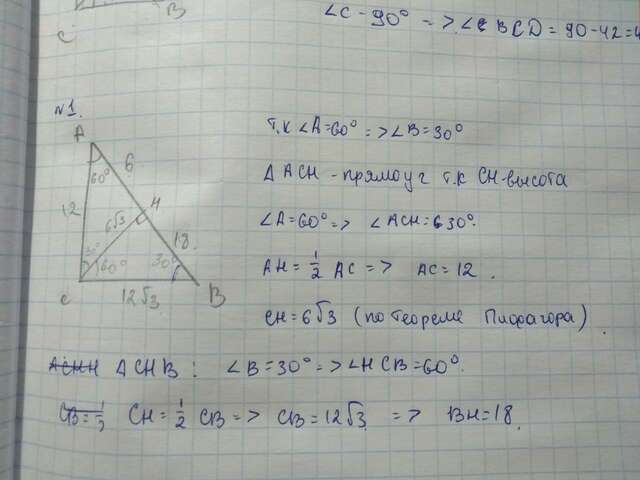 B
C
∠C - 90° => ∠BCD = 90-42=4
№1.
A
60°
6
12
H
6√3
18.
30°
60°
30°
C
12√3
B
т.к ∠A=60° => ∠B=30°
Δ ACH - прямоуг т.к CH-высота
∠A=60° => ∠ACH=30°.
AH = 1/2 AC => AC = 12.
CH = 6√3 (по теореме Пифагора).
ΔCHB : ∠B=30° => ∠HCB=60°.
CB = 1/2 CH = 1/2 CB => CB = 12√3 => BH=18.